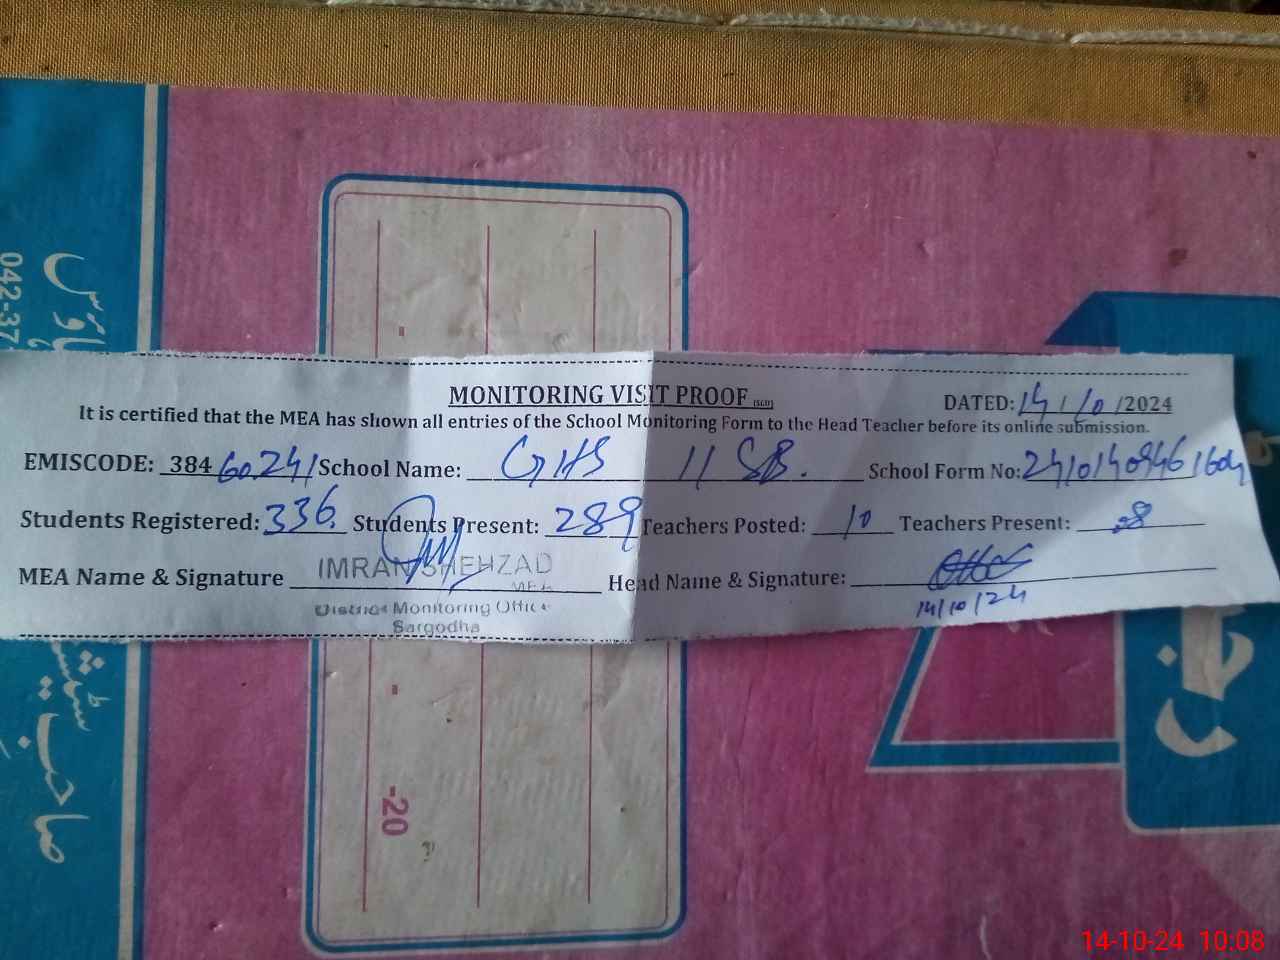 MONITORING VISIT PROOF (SGD)
DATED: 14/10/2024
It is certified that the MEA has shown all entries of the School Monitoring Form to the Head Teacher before its online submission.
EMISCODE: 38460241 School Name: GHS 11 SB. School Form No:
Students Registered: 336. Students Present: 289 Teachers Posted: 10 Teachers Present: 08
MEA Name & Signature IMRAN SHEHZAD Head Name & Signature:
MEA
District Monitoring Office
Sargodha
14/10/24
042-37
صاحب
رجسٹر
-20
14-10-24 10:08